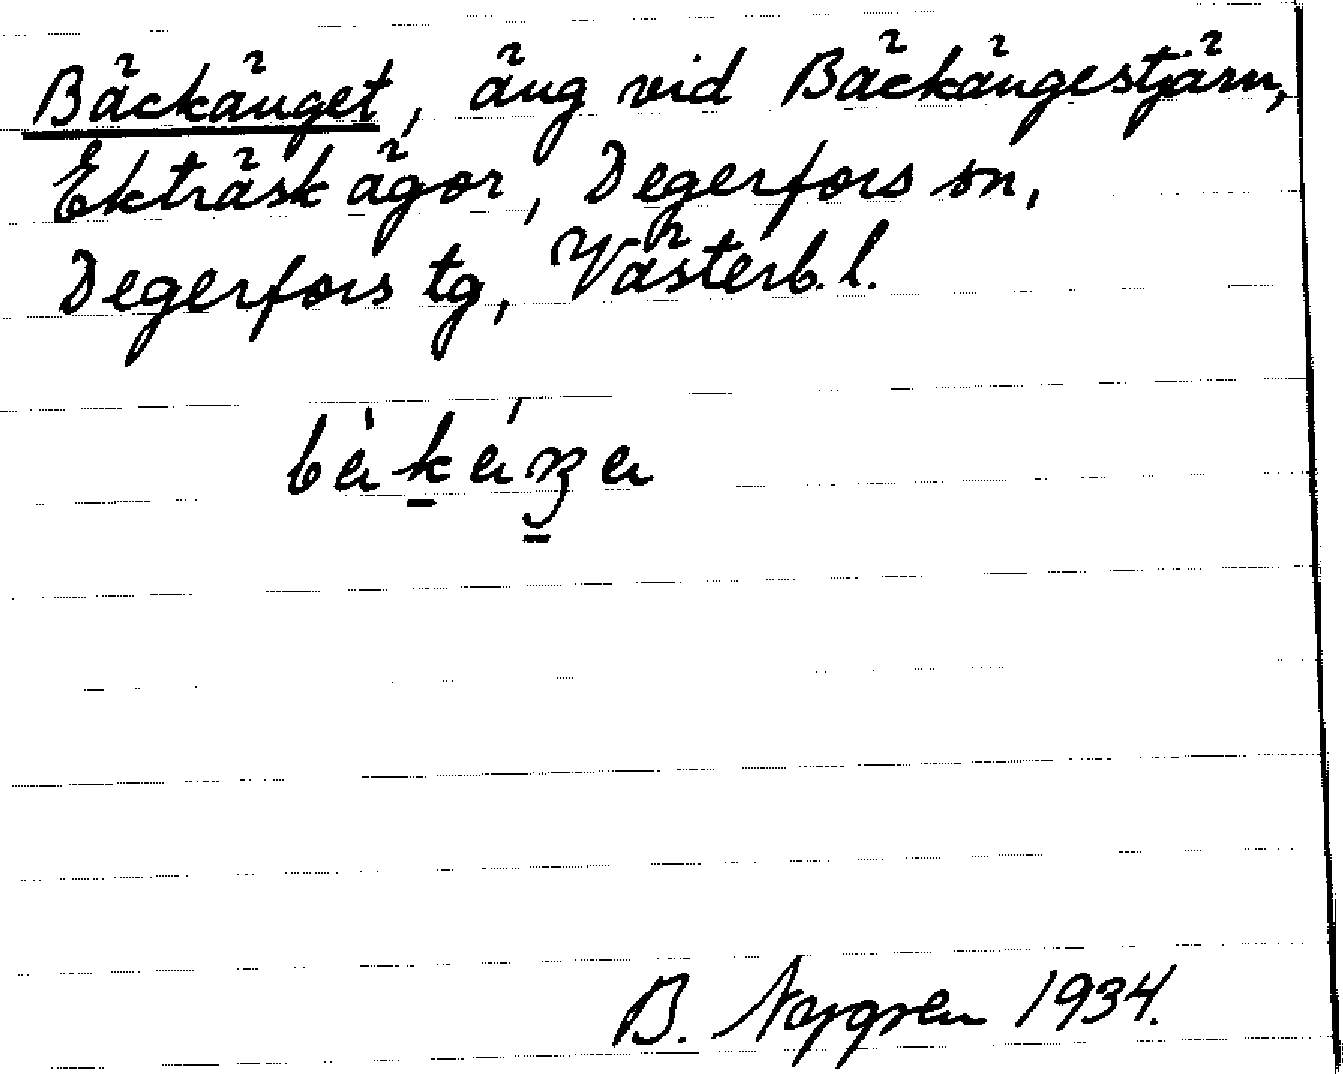 Bäckänget, äng vid Bäckängestjärn,
Ekträsk ägor, Degerfors sn,
Degerfors tg, Västerb. l.
B. 1934.